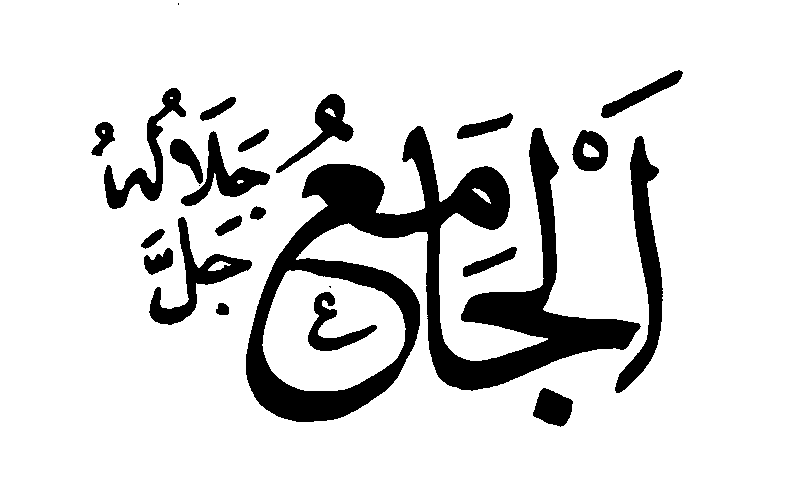 اَلْجَامِعُ
ع
جَلَّ
جَلَالُهُ